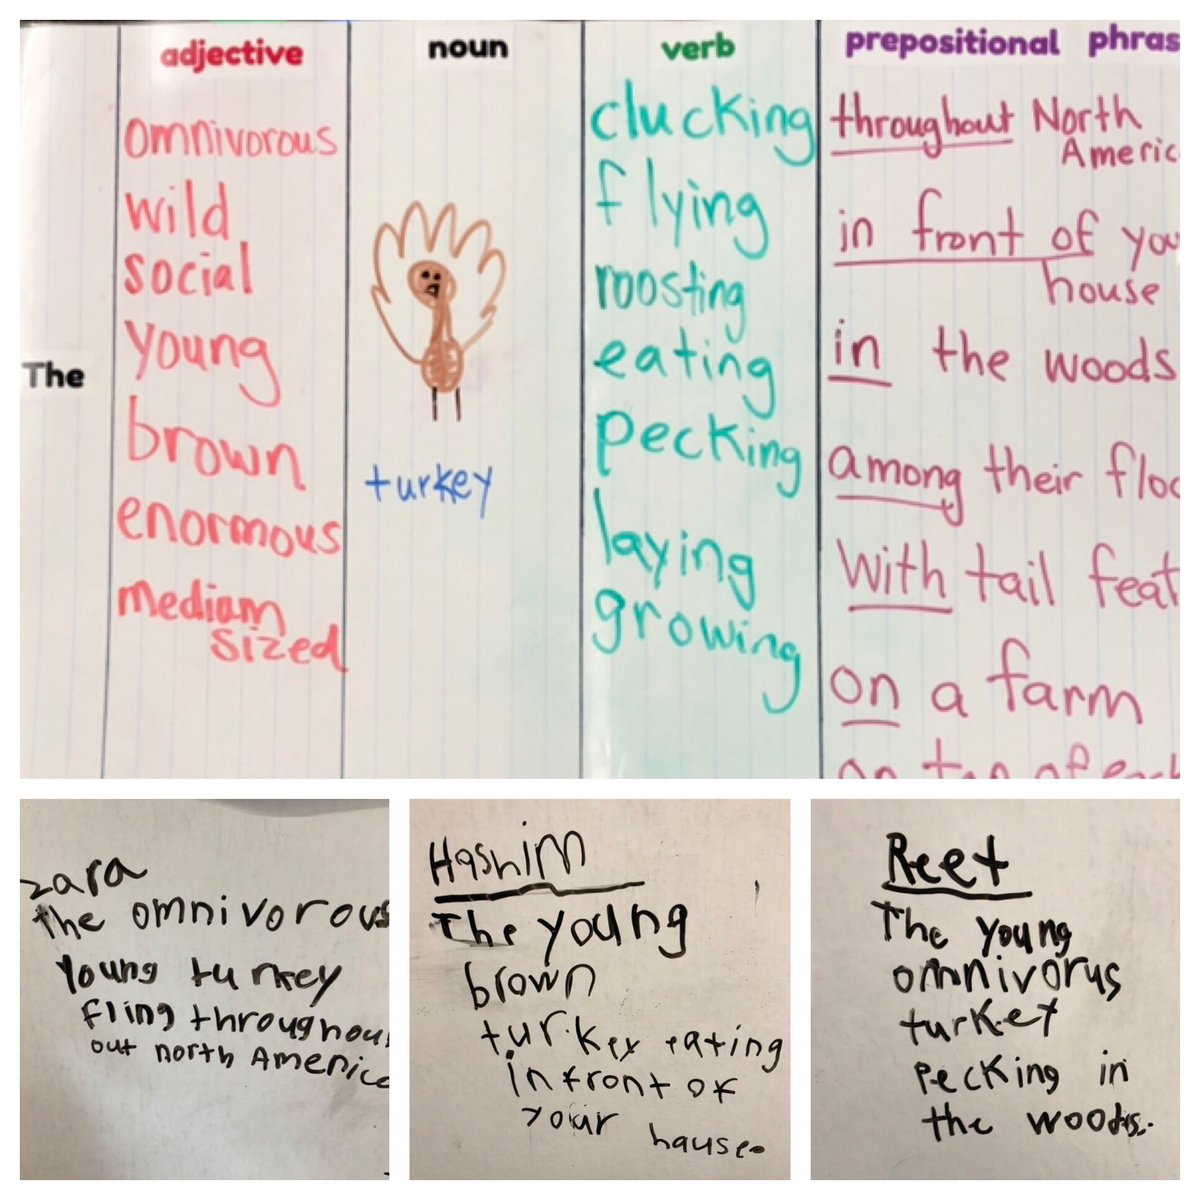 adjective
noun
verb
prepositional phras
The
omnivorous
wild
social
young
brown
enormous
mediam
sized
turkey
clucking
flying
roosting
eating
pecking
laying
growing
throughout North
Americ
in front of you
house
in the woods
among their floc
with tail feat
on a farm
on top of
zara
the omnivorous
young turkey
fling throughou
out north America
Hashim
The young
brown
turkey eating
in front of
your hause.
Reet
The young
omnivorus
turket
pecking in
the woods.